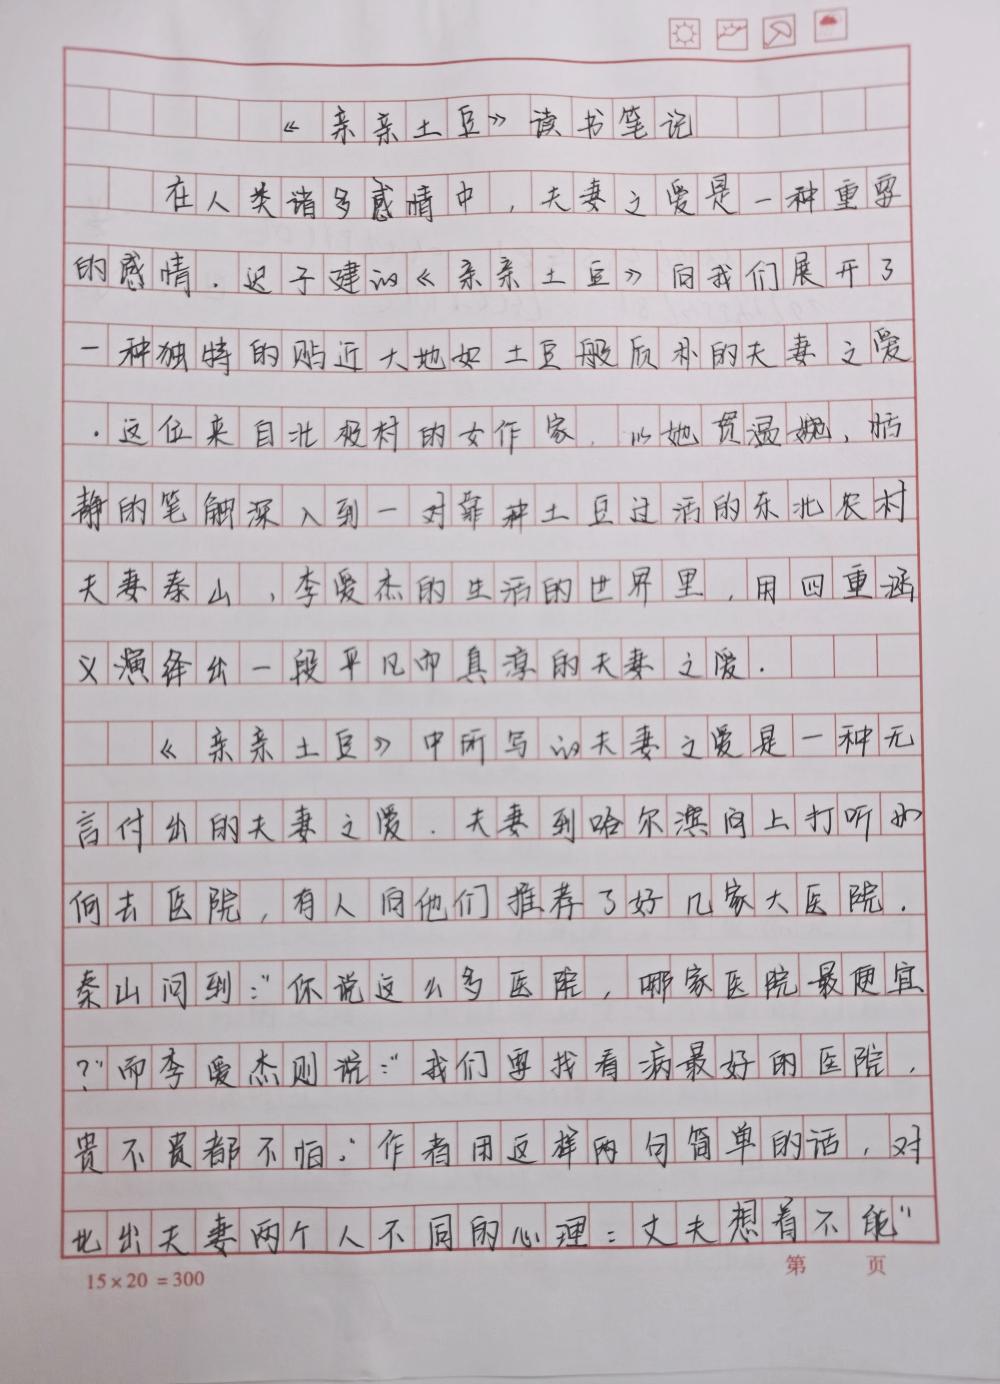 《亲亲土豆》读书笔记
在人类诸多感情中,夫妻之爱是一种重要
的感情.迟子建的《亲亲土豆》向我们展开了
一种独特的贴近大地如土豆般质朴的夫妻之爱
.这位来自北极村的女作家,以她贯温婉、恬
静的笔触深入到一对靠种土豆过活的东北农村
夫妻秦山,李爱杰的生活的世界里,用四重涵
义演绎出一段平凡而真淳的夫妻之爱.
《亲亲土豆》中所写的夫妻之爱是一种无
言付出的夫妻之爱.夫妻到哈尔滨向上打听如
何去医院,有人向他们推荐了好几家大医院.
秦山问到:"你说这么多医院,哪家医院最便宜
?"而李爱杰则说:"我们要找看病最好的医院,
贵不贵都不怕."作者用这样两句简单的话,对
比出夫妻两个人不同的心理:丈夫想着不能"
15×20=300
第 页